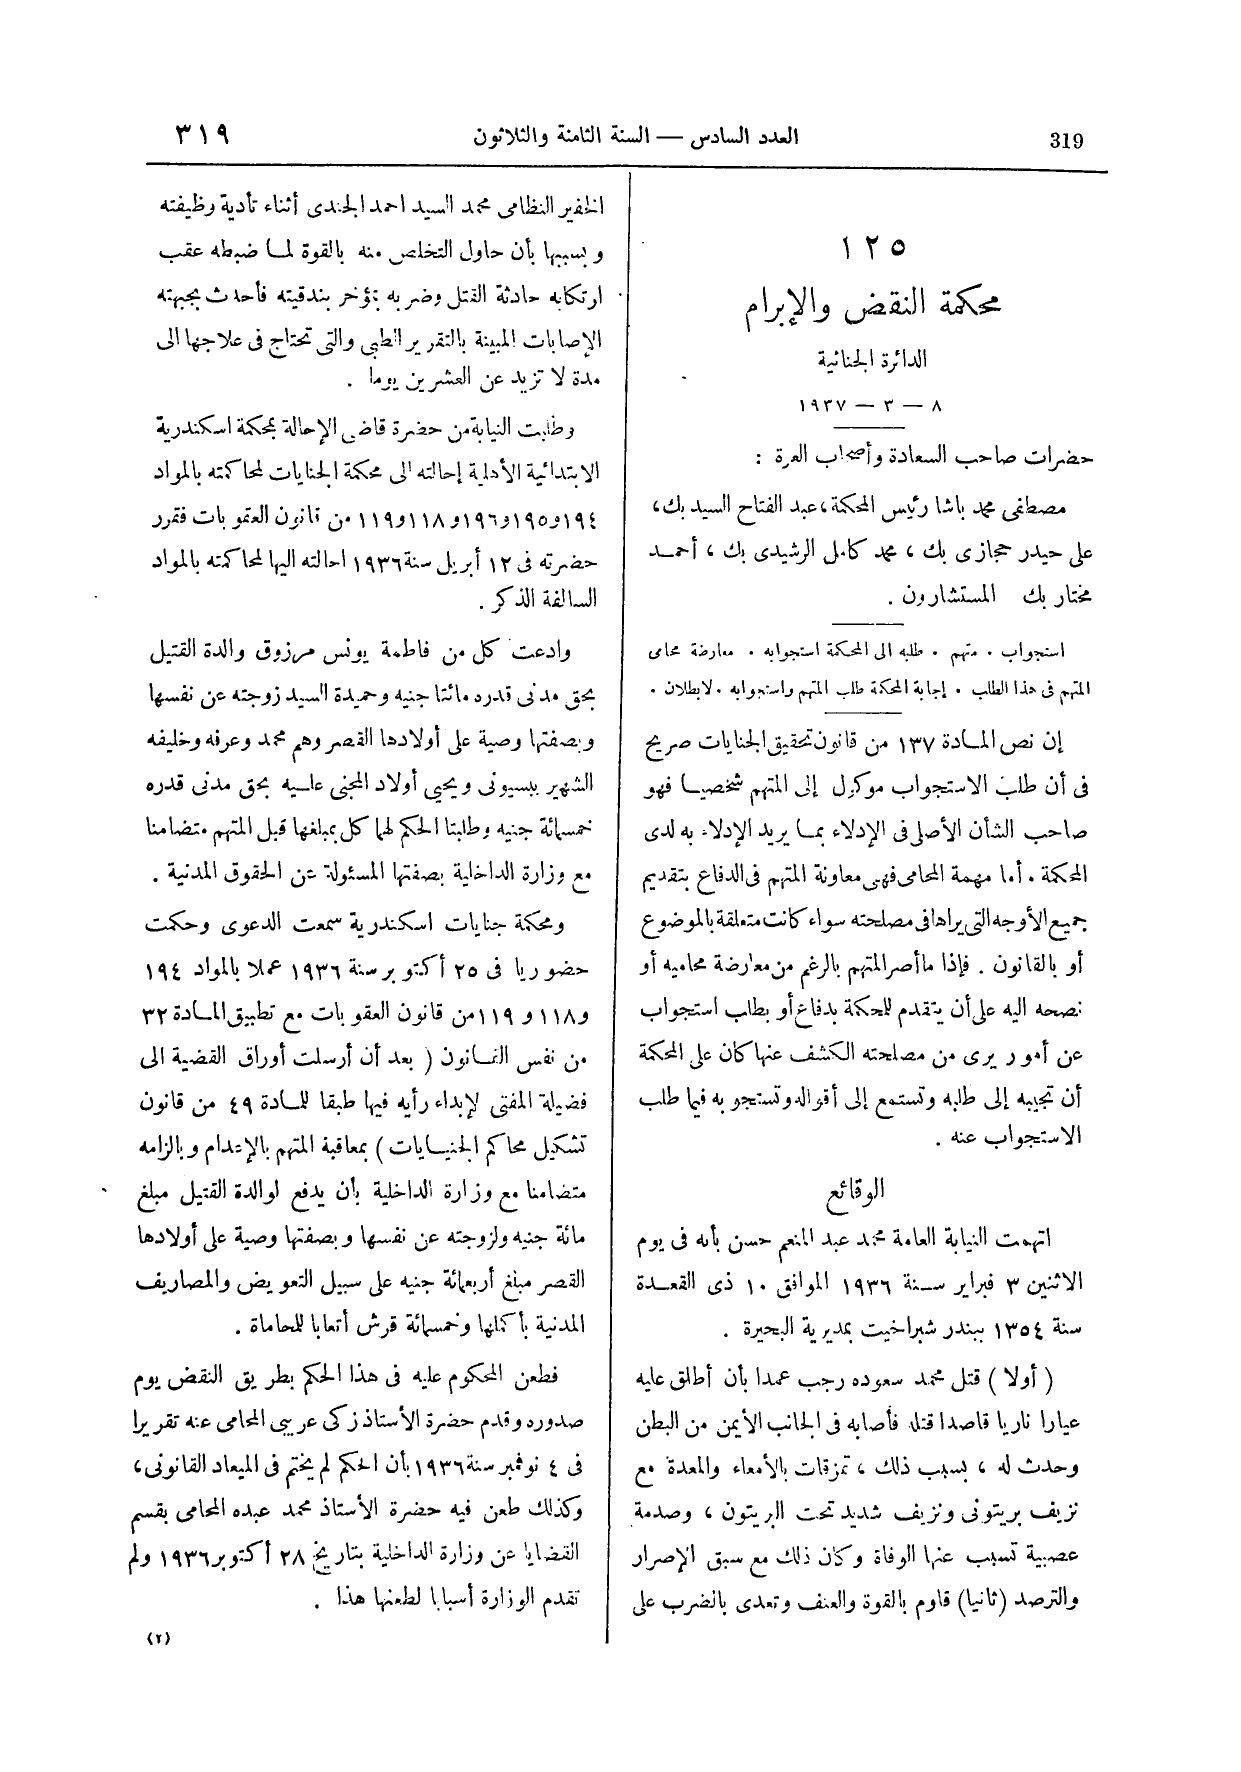 319
العدد السادس — السنة الثامنة والثلاثون
٣١٩
١٢٥
محكمة النقض والإبرام
الدائرة الجنائية
٨ — ٣ — ١٩٣٧
حضرات صاحب السعادة وأصحاب العزة :
مصطفى محمد باشا رئيس المحكمة ، عبد الفتاح السيد بك ،
على حيدر حجازى بك ، محمد كامل الرشيدى بك ، أحمد
مختار بك المستشارون .
استجواب . متهم . طلبه الى المحكمة استجوابه . معارضة محامى
المتهم فى هذا الطلب . إجابة المحكمة طلب المتهم واستجوابه . لابطلان .
إن نص المادة ١٣٧ من قانون تحقيق الجنايات صريح
فى أن طلب الاستجواب موكول إلى المتهم شخصيا فهو
صاحب الشأن الأصلى فى الإدلاء بما يريد الإدلاء به لدى
المحكمة . أما مهمة المحامى فهى معاونة المتهم فى الدفاع بتقديم
جميع الأوجه التى يراها فى مصلحته سواء كانت متعلقة بالموضوع
أو بالقانون . فإذا ما أصر المتهم بالرغم من معارضة محاميه أو
نصحه اليه على أن يتقدم للمحكمة بدفاع أو بطلب استجواب
عن أمور يرى من مصلحته الكشف عنها كان على المحكمة
أن تجيبه إلى طلبه وتستمع إلى أقواله وتستجوبه فيما طلب
الاستجواب عنه .
الوقائع
اتهمت النيابة العامة محمد عبد المنعم حسن بأنه فى يوم
الاثنين ٣ فبراير سنة ١٩٣٦ الموافق ١٠ ذى القعدة
سنة ١٣٥٤ ببندر شبراخيت بمديرية البحيرة .
( أولا ) قتل محمد سعوده رجب عمدا بأن أطلق عليه
عيارا ناريا قاصدا قتله فأصابه فى الجانب الأيمن من البطن
وحدث له ، بسبب ذلك ، تمزقات بالأمعاء والمعدة مع
نزيف بريتونى ونزيف شديد تحت البريتون ، وصدمة
عصبية تسبب عنها الوفاة وكان ذلك مع سبق الإصرار
والترصد (ثانيا) قاوم بالقوة والعنف وتعدى بالضرب على
الخفير النظامى محمد السيد احمد الجندى أثناء تأدية وظيفته
وبسببها بأن حاول التخلص منه بالقوة لما ضبطه عقب
ارتكابه حادثة القتل وضربه بمؤخر بندقيته فأحدث بجبهته
الإصابات المبينة بالتقرير الطبى والتى تحتاج فى علاجها الى
مدة لا تزيد عن العشرين يوما .
وطلبت النيابة من حضرة قاضى الإحالة بمحكمة اسكندرية
الابتدائية الأهلية إحالته الى محكمة الجنايات لمحاكمته بالمواد
١٩٤ و١٩٥ و١٩٦ و١١٨ و١١٩ من قانون العقوبات فقرر
حضرته فى ١٢ أبريل سنة ١٩٣٦ احالته اليها لمحاكمته بالمواد
السالفة الذكر .
وادعت كل من فاطمة يونس مرزوق والدة القتيل
بحق مدنى قدره مائتا جنيه وحميدة السيد زوجته عن نفسها
وبصفتها وصية على أولادها القصر وهم محمد وعرفه وخليفه
الشهير ببسيونى ويحيى أولاد المجنى عليه بحق مدنى قدره
خمسمائة جنيه وطلبتا الحكم لهما كل بمبلغها قبل المتهم متضامنا
مع وزارة الداخلية بصفتها المسئولة عن الحقوق المدنية .
ومحكمة جنايات اسكندرية سمعت الدعوى وحكمت
حضوريا فى ٢٥ أكتوبر سنة ١٩٣٦ عملا بالمواد ١٩٤
و١١٨ و١١٩ من قانون العقوبات مع تطبيق المادة ٣٢
من نفس القانون ( بعد أن أرسلت أوراق القضية الى
فضيلة المفتى لإبداء رأيه فيها طبقا للمادة ٤٩ من قانون
تشكيل محاكم الجنايات ) بمعاقبة المتهم بالإعدام وبالزامه
متضامنا مع وزارة الداخلية بأن يدفع لوالدة القتيل مبلغ
مائة جنيه ولزوجته عن نفسها وبصفتها وصية على أولادها
القصر مبلغ أربعمائة جنيه على سبيل التعويض والمصاريف
المدنية بأكملها وخمسمائة قرش أتعابا للمحاماة .
فطعن المحكوم عليه فى هذا الحكم بطريق النقض يوم
صدوره وقدم حضرة الأستاذ زكى عريبى المحامى عنه تقريرا
فى ٤ نوفمبر سنة ١٩٣٦ بأن الحكم لم يختم فى الميعاد القانونى ،
وكذلك طعن فيه حضرة الأستاذ محمد عبده المحامى بقسم
القضايا عن وزارة الداخلية بتاريخ ٢٨ أكتوبر ١٩٣٦ ولم
تقدم الوزارة أسبابا لطعنها هذا .
(٢)